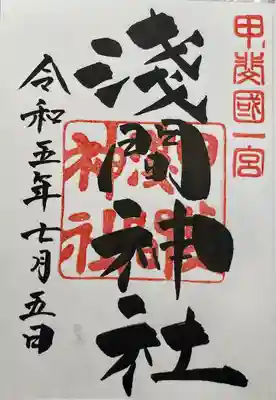 甲斐國一宮
淺間神社
淺間神社
令和五年七月五日